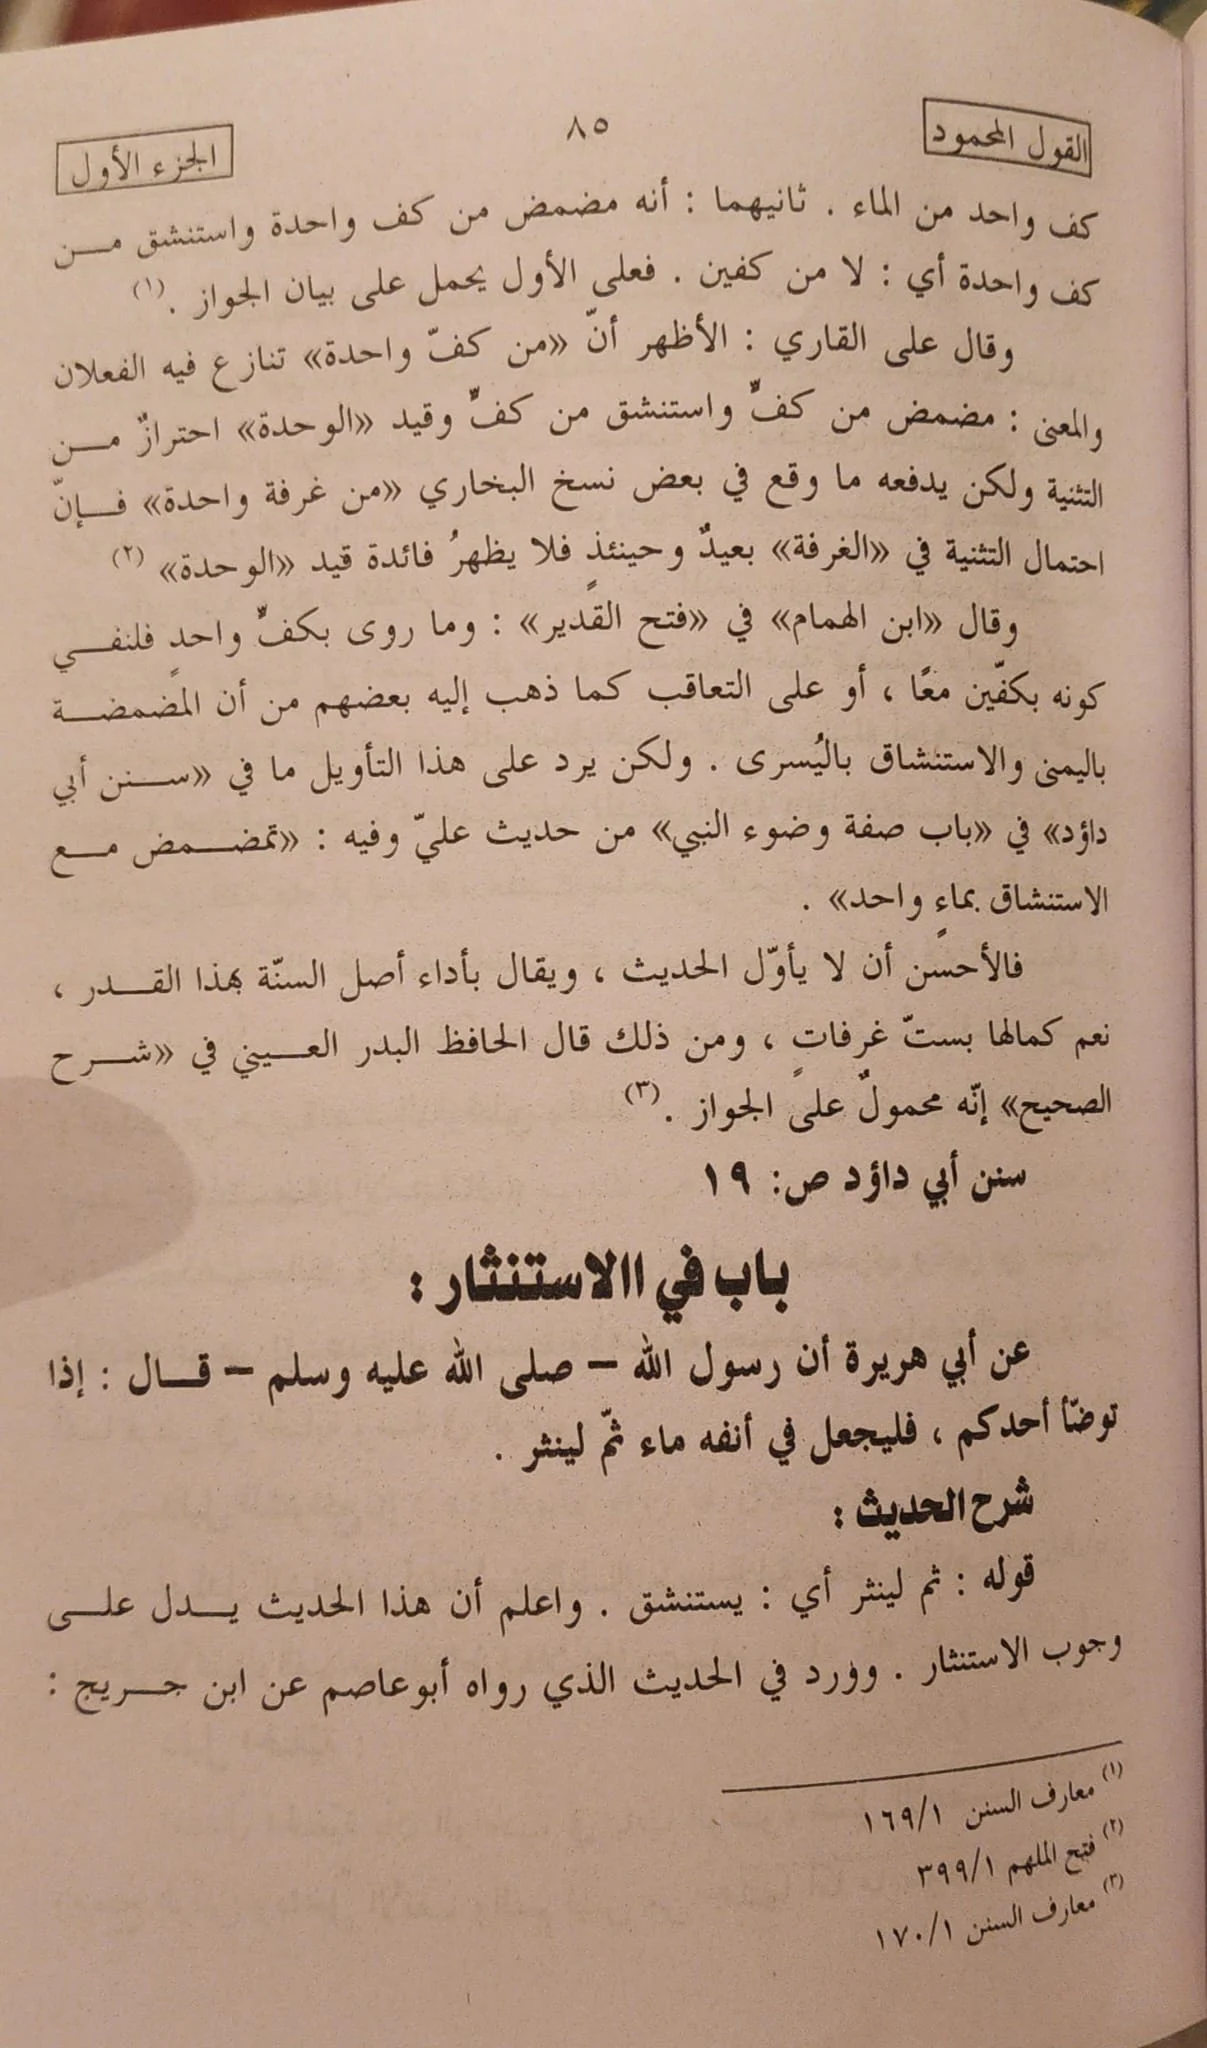 القول المحمود
٨٥
الجزء الأول
كف واحد من الماء . ثانيهما : أنه مضمض من كف واحدة واستنشق من
كف واحدة أي : لا من كفين . فعلى الأول يحمل على بيان الجواز .(١)
وقال على القاري : الأظهر أنّ «من كفّ واحدة» تنازع فيه الفعلان
والمعنى : مضمض من كفٍّ واستنشق من كفٍّ وقيد «الوحدة» احترازٌ من
التثنية ولكن يدفعه ما وقع في بعض نسخ البخاري «من غرفة واحدة» فإنّ
احتمال التثنية في «الغرفة» بعيدٌ وحينئذٍ فلا يظهرُ فائدة قيد «الوحدة» (٢)
وقال «ابن الهمام» في «فتح القدير» : وما روى بكفٍّ واحدٍ فلنفي
كونه بكفّين معًا ، أو على التعاقب كما ذهب إليه بعضهم من أن المضمضة
باليمنى والاستنشاق باليُسرى . ولكن يرد على هذا التأويل ما في «سنن أبي
داؤد» في «باب صفة وضوء النبي» من حديث عليّ وفيه : «تمضمض مع
الاستنشاق بماءٍ واحد» .
فالأحسن أن لا يأوّل الحديث ، ويقال بأداء أصل السنّة بهذا القدر ،
نعم كمالها بستّ غرفاتٍ ، ومن ذلك قال الحافظ البدر العيني في «شرح
الصحيح» إنّه محمولٌ على الجواز .(٣)
سنن أبي داؤد ص: ١٩
باب في االاستنثار :
عن أبي هريرة أن رسول الله – صلى الله عليه وسلم – قال : إذا
توضّأ أحدكم ، فليجعل في أنفه ماء ثمّ لينثر .
شرح الحديث :
قوله : ثم لينثر أي : يستنشق . واعلم أن هذا الحديث يدل على
وجوب الاستنثار . وورد في الحديث الذي رواه أبوعاصم عن ابن جريج :
(١) معارف السنن ١٦٩/١
(٢) فتح الملهم ٣٩٩/١
(٣) معارف السنن ١٧٠/١